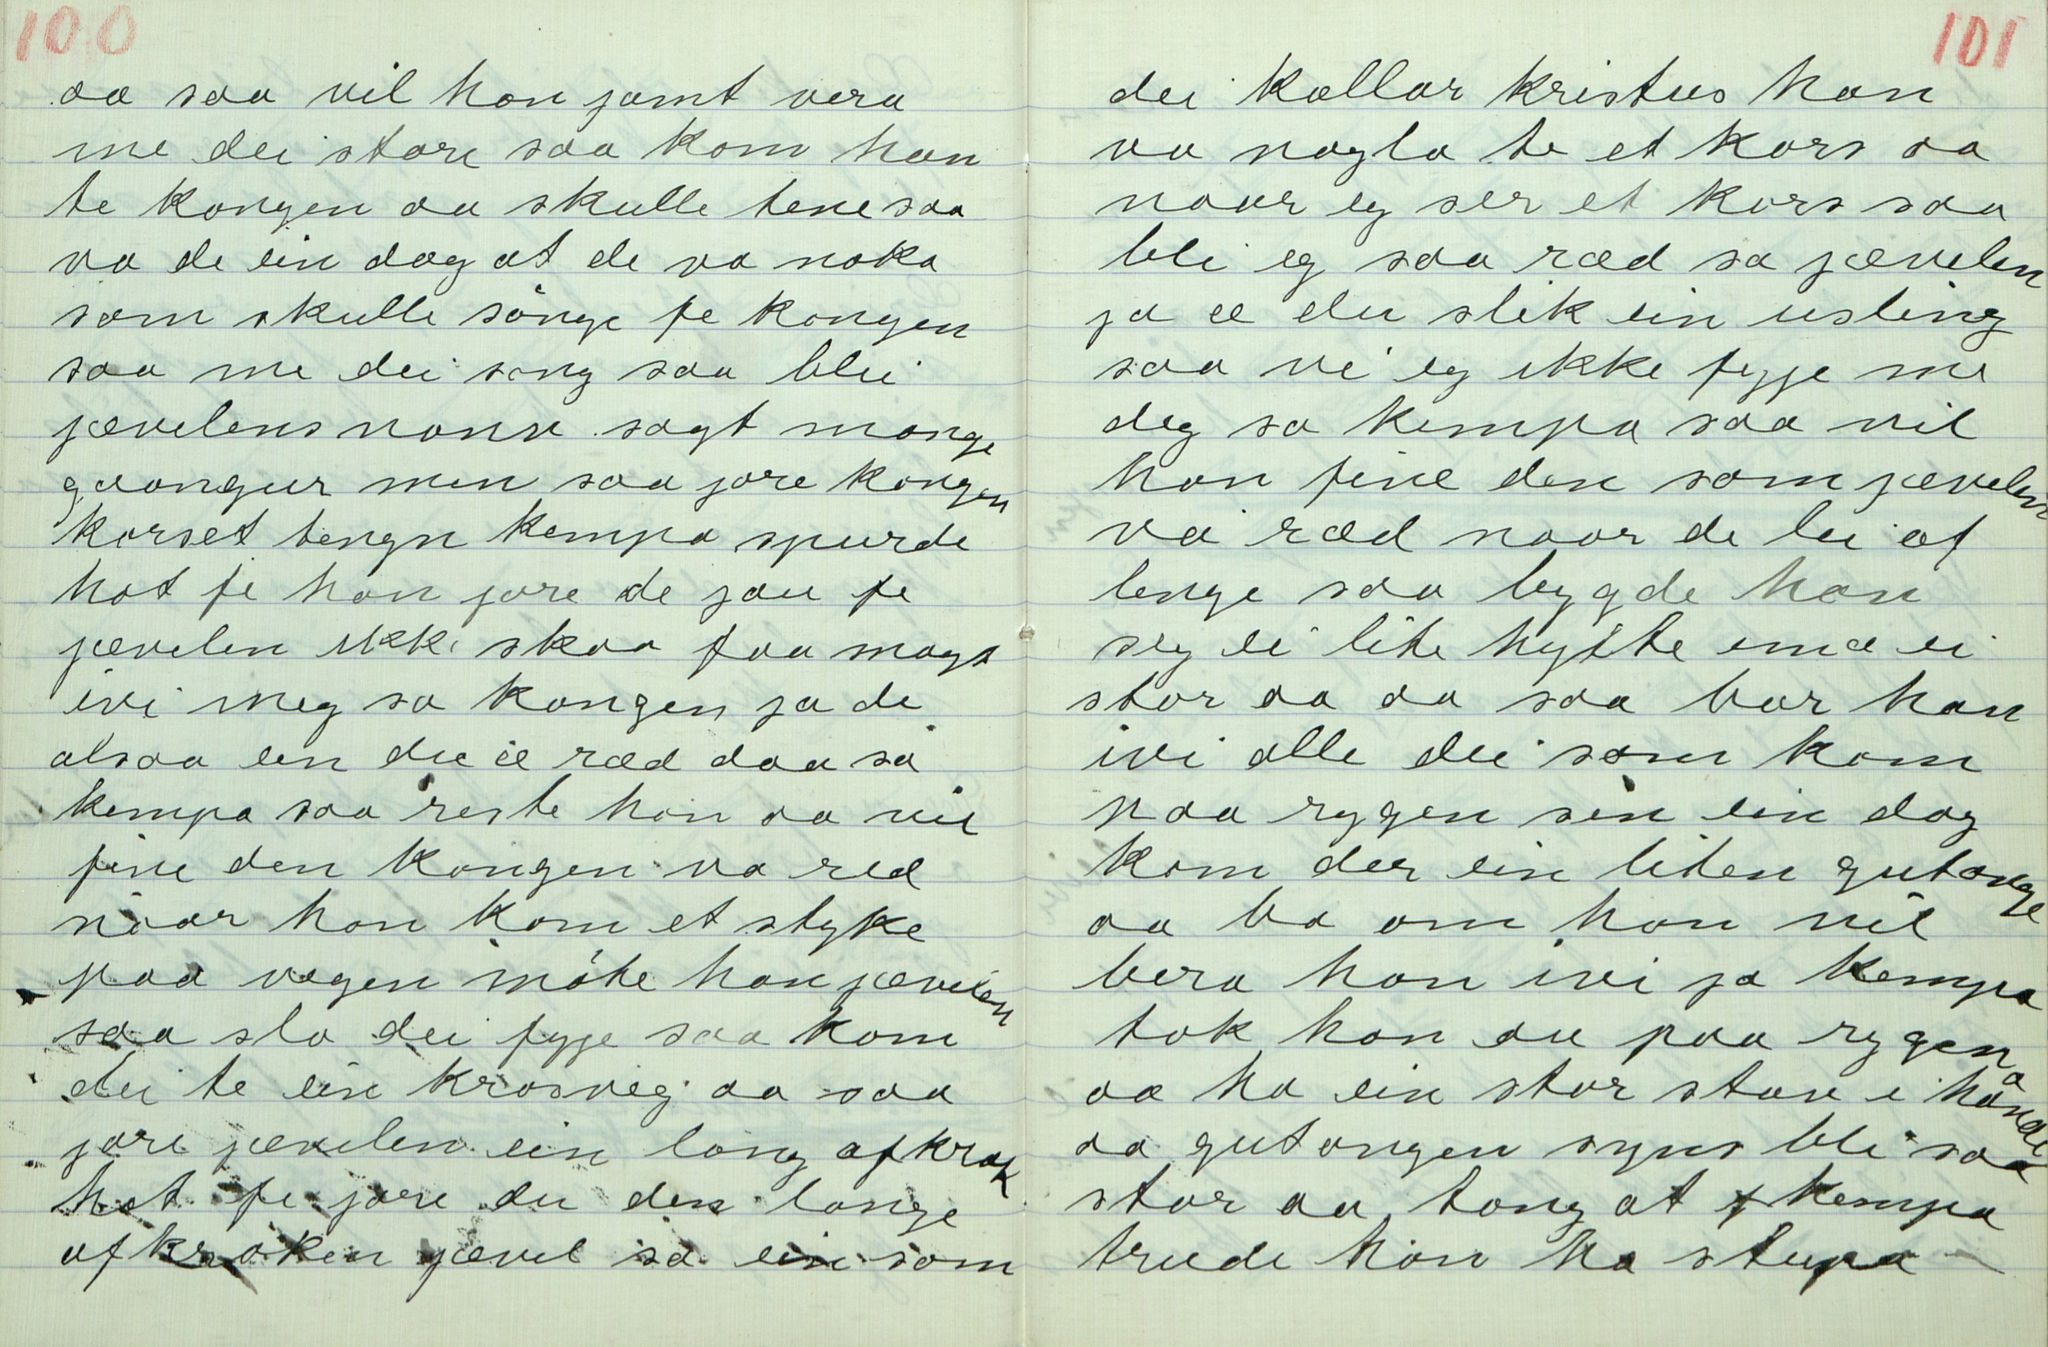 100
aa saa vil han jamt vera
me dei store saa kom han
te kongen aa skulle tene saa
va de ein dag at de va noka
som skulle sónge fe kongen
saa me dei song saa blei
jævelens navn sagt mange
gaangur men saa jore kongen
korset tengn kempa spurde
hot fe han jore de jau fe
jævelen ikke skaa faa magt
ivi meg sa kongen ja de
alsaa ein du æ ræd daa sa
kempa saa reste han aa vil
fine den kongen va red
naar han kom et styke
paa vegen móte han jævelen
saa sla dei fygje saa kom
dei te ein krosveg aa saa
jore jævelen ein lang afkrok
hot fe jore du den lange
afkroken jævel sa ein som
101
dei kallar kristus han
va nagla te et kors aa
naar eg ser et kors saa
bli eg saa ræd sa jævelen
ja æ du slik ein usling
saa vi eg ikke fygje me
deg sa kempa saa vil
han fine den som jævelen
va ræd naar de lei af
lenge saa bygde han
seg ei lite hytte imæ ei
stor aa aa saa bar han
ivi alle dei som kom
paa rygen sin ein dag
kom der ein liten gutonge
aa ba om han vil
bera han ivi ja kempa
tok han au paa rygen
aa ha ein stor stav i hande
aa gutongen syns bli saa
stor aa tong at kempa
trude han ha stupa